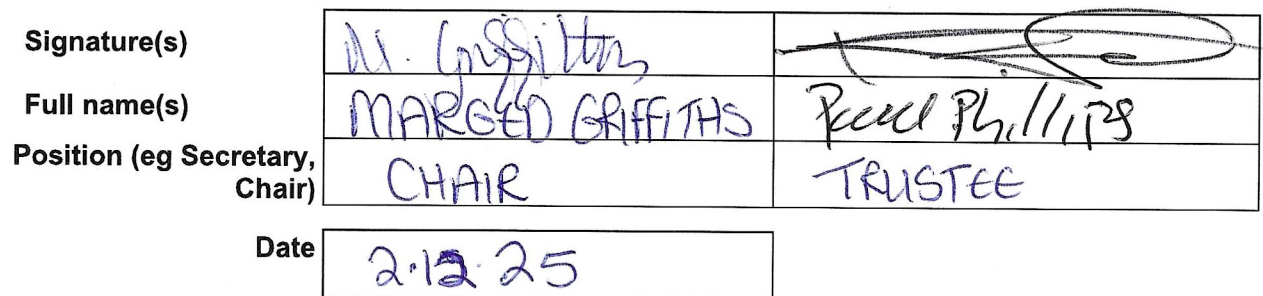 Signature(s) M. Griffiths
Full name(s) MARGED GRIFFITHS Paul Phillips
Position (eg Secretary, Chair) CHAIR TRUSTEE
Date 2.12.25